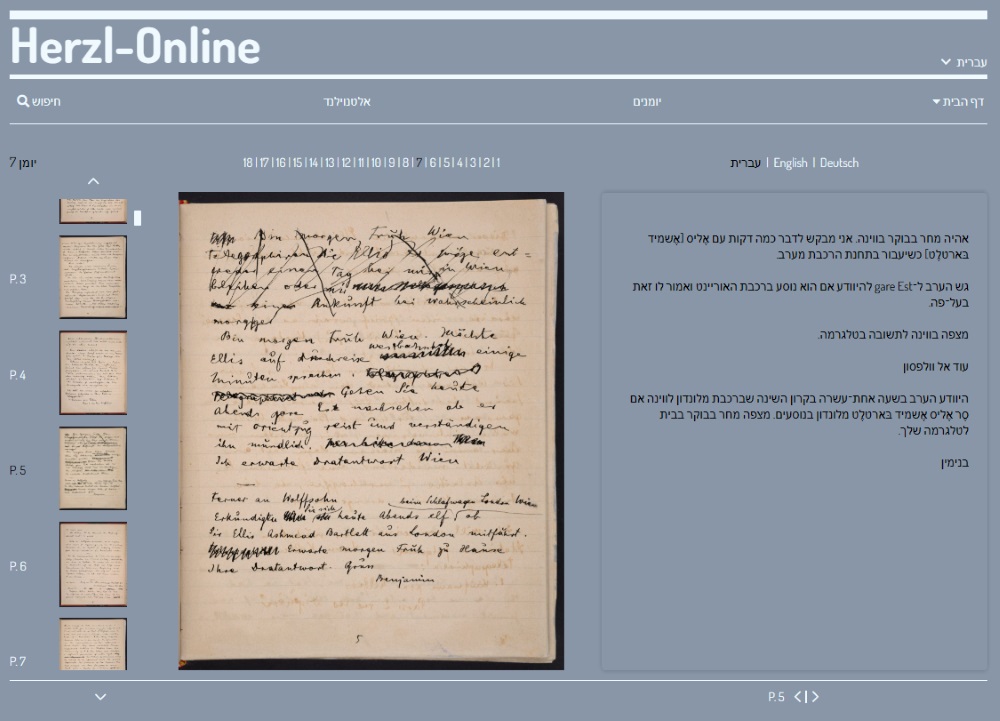 Herzl-Online
עברית
דף הבית
יומנים
אלטנוילנד
חיפוש
יומן 7
18|17|16|15|14|13|12|11|10|9|8|7|6|5|4|3|2|1
עברית | English | Deutsch
P.3
P.4
P.5
P.6
P.7
Bin morgen Früh Wien
Telegraphiren Sie Ellis er möge ent=
weder einen Tag bei mir in Wien
bleiben oder mir
Ankunft bei wahrscheinlich
morgen
Bin morgen früh Wien. Möchte
Ellis auf Durchreise westbahnhof einige
Minuten sprechen.
Gehen Sie heute
abends gare Est nachsehen ob er
mit orientzug reist und verständigen
ihn mündlich.
Ich erwarte dratantwort Wien
Ferner an Wolffsohn
beim Schlafwagen London Wien
Erkundigen Sie sich heute Abends elf ob
Sir Ellis Ashmead Bartlett aus London mitfährt.
Erwarte morgen Früh zu Hause
Ihre dratantwort. Gruss
Benjamin
5
אהיה מחר בבוקר בווינה. אני מבקש לדבר כמה דקות עם אֶליס [אֶשמיד
בּארטלֶט] כשיעבור בתחנת הרכבת מערב.
גש הערב ל־gare Est להיוודע אם הוא נוסע ברכבת האוריינט ואמור לו זאת
בעל־פה.
מצפה בווינה לתשובה בטלגרמה.
עוד אל וולפסון
היוודע הערב בשעה אחת־עשרה בקרון השינה שברכבת מלונדון לווינה אם
סֶר אֶליס אֶשמיד בּארטלֶט מלונדון בנוסעים. מצפה מחר בבוקר בבית
לטלגרמה שלך.
בנימין
P.5